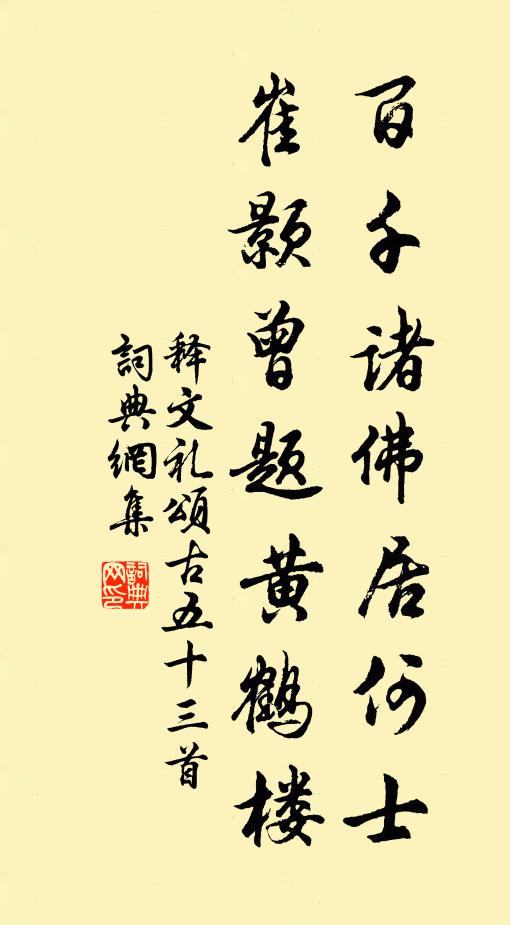 百千诸佛居何士
崔颢曾题黄鹤楼
释文礼颂古五十三首
詞典網集
詞典网印